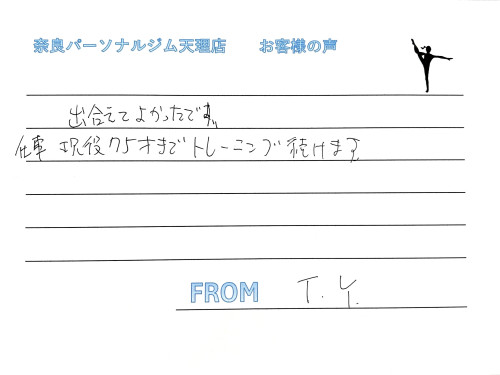 奈良パーソナルジム天理店　　お客様の声
出会えてよかったです。
仕事 現役75才までトレーニング続けます
FROM T.Y.